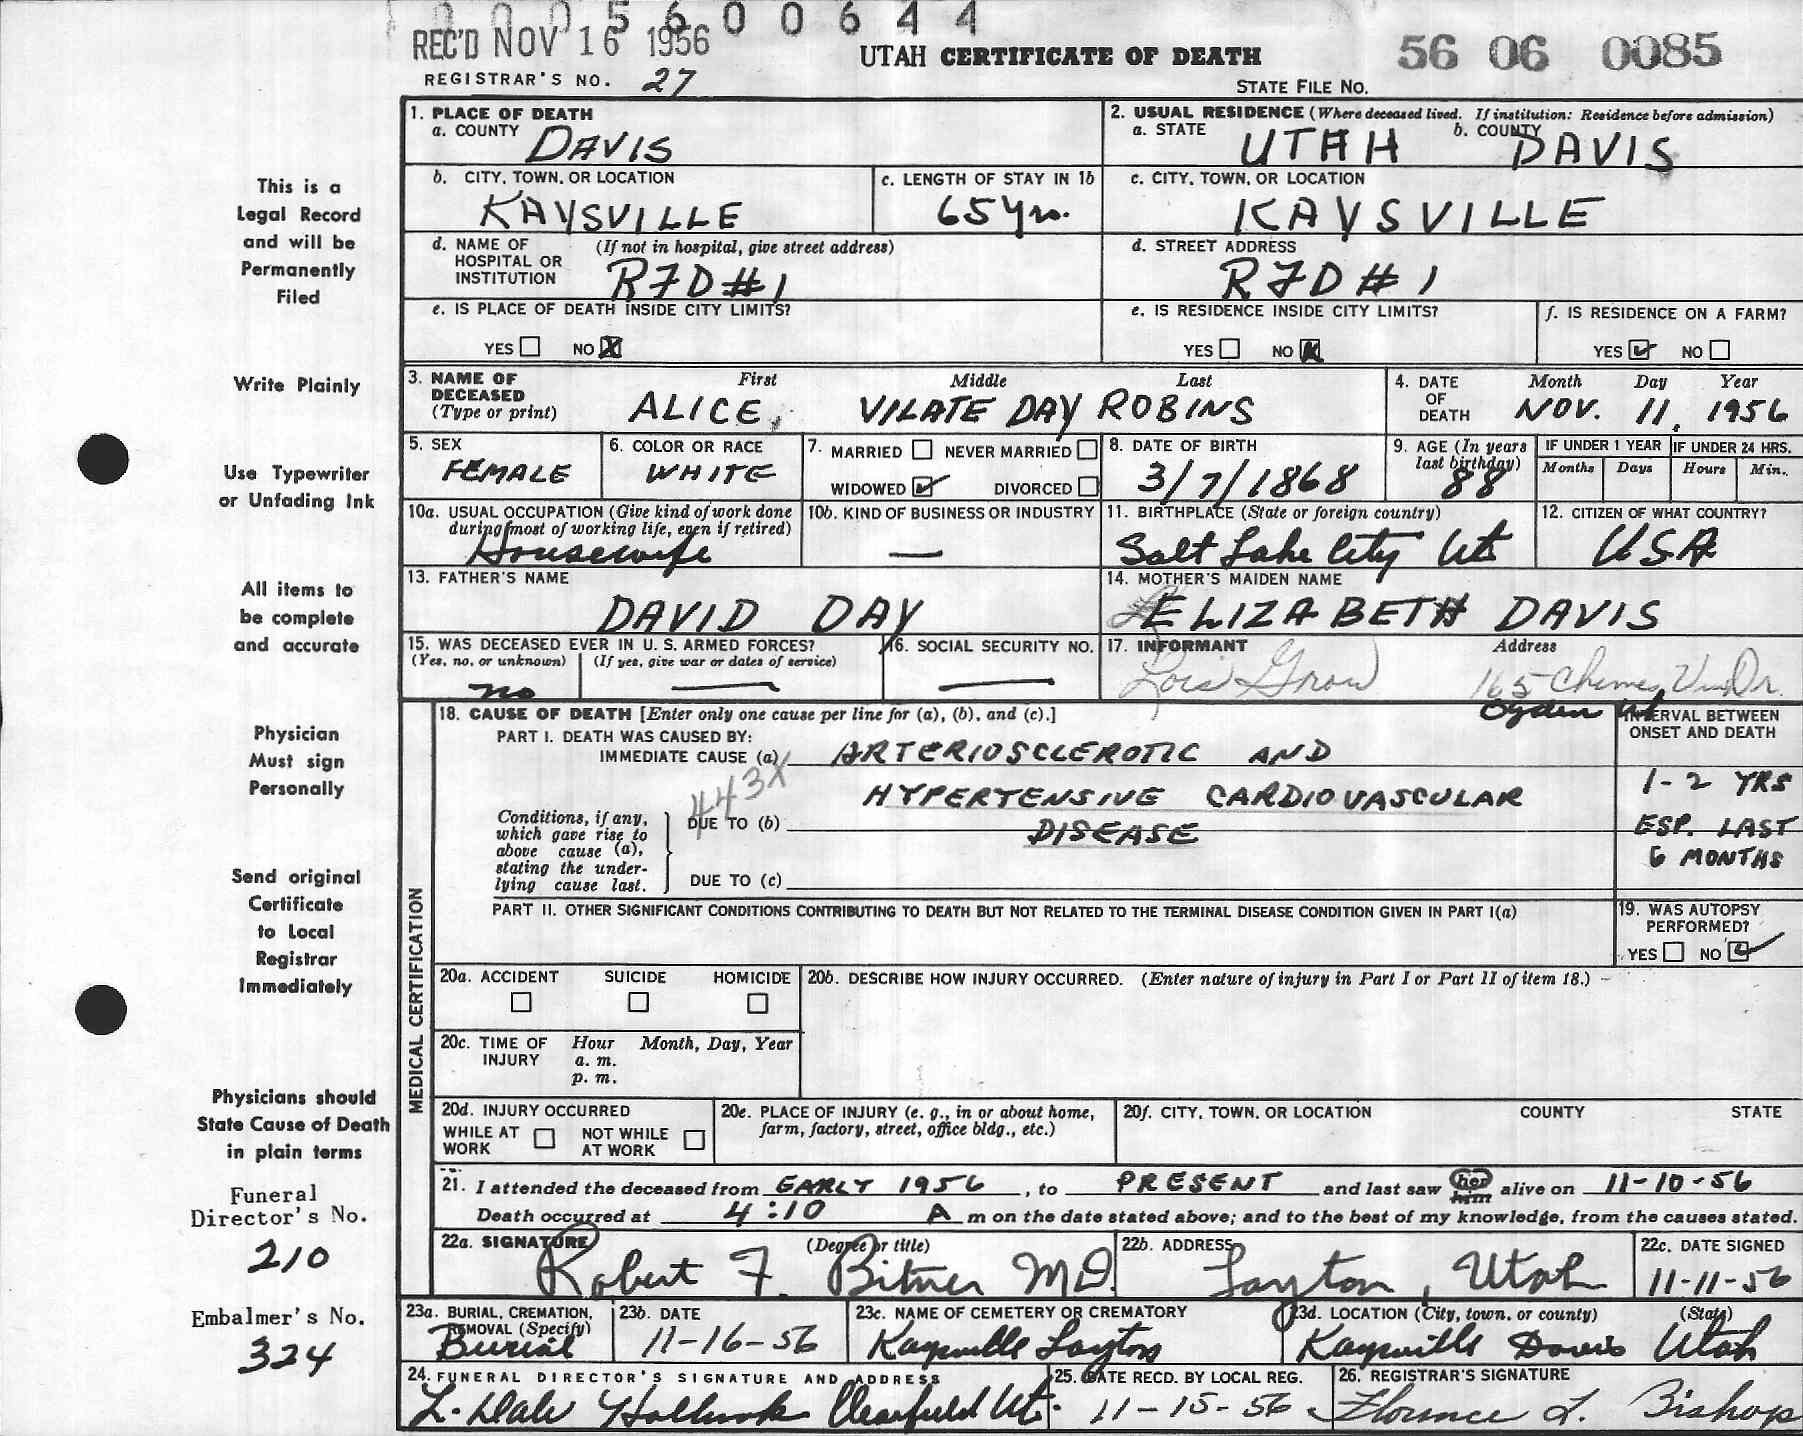 0005600644
REC'D NOV 16 1956
UTAH CERTIFICATE OF DEATH
56 06 0085
REGISTRAR'S NO. 27
STATE FILE NO.
This is a
Legal Record
and will be
Permanently
Filed
Write Plainly
Use Typewriter
or Unfading Ink
All items to
be complete
and accurate
Physician
Must sign
Personally
Send original
Certificate
to Local
Registrar
Immediately
Physicians should
State Cause of Death
in plain terms
Funeral
Director's No.
210
Embalmer's No.
324
1. PLACE OF DEATH
a. COUNTY DAVIS
2. USUAL RESIDENCE (Where deceased lived. If institution: Residence before admission)
a. STATE UTAH b. COUNTY DAVIS
b. CITY, TOWN, OR LOCATION
KAYSVILLE
c. LENGTH OF STAY IN 1b
65 yrs.
c. CITY, TOWN, OR LOCATION
KAYSVILLE
d. NAME OF (If not in hospital, give street address)
HOSPITAL OR
INSTITUTION RFD#1
d. STREET ADDRESS
RFD#1
e. IS PLACE OF DEATH INSIDE CITY LIMITS?
YES NO X
e. IS RESIDENCE INSIDE CITY LIMITS?
YES NO X
f. IS RESIDENCE ON A FARM?
YES ✓ NO
3. NAME OF First Middle Last
DECEASED
(Type or print) ALICE, VILATE DAY ROBINS
4. DATE Month Day Year
OF
DEATH NOV. 11, 1956
5. SEX
FEMALE
6. COLOR OR RACE
WHITE
7. MARRIED NEVER MARRIED
WIDOWED ✓ DIVORCED
8. DATE OF BIRTH
3/7/1868
9. AGE (In years
last birthday)
88
IF UNDER 1 YEAR IF UNDER 24 HRS.
Months Days Hours Min.
10a. USUAL OCCUPATION (Give kind of work done
during most of working life, even if retired)
Housewife
10b. KIND OF BUSINESS OR INDUSTRY
—
11. BIRTHPLACE (State or foreign country)
Salt Lake City Ut
12. CITIZEN OF WHAT COUNTRY?
USA
13. FATHER'S NAME
DAVID DAY
14. MOTHER'S MAIDEN NAME
ELIZABETH DAVIS
15. WAS DECEASED EVER IN U. S. ARMED FORCES?
(Yes, no, or unknown) (If yes, give war or dates of service)
no —
16. SOCIAL SECURITY NO.
—
17. INFORMANT Address
Lois Grow 165 Dr.
Ogden Ut
MEDICAL CERTIFICATION
18. CAUSE OF DEATH [Enter only one cause per line for (a), (b), and (c).]
PART I. DEATH WAS CAUSED BY:
IMMEDIATE CAUSE (a) ARTERIOSCLEROTIC AND
443X
HYPERTENSIVE CARDIOVASCULAR
DUE TO (b) DISEASE
Conditions, if any,
which gave rise to
above cause (a),
stating the under-
lying cause last.
DUE TO (c)
INTERVAL BETWEEN
ONSET AND DEATH
1-2 YRS
ESP. LAST
6 MONTHS
PART II. OTHER SIGNIFICANT CONDITIONS CONTRIBUTING TO DEATH BUT NOT RELATED TO THE TERMINAL DISEASE CONDITION GIVEN IN PART I(a)
19. WAS AUTOPSY
PERFORMED?
YES NO ✓
20a. ACCIDENT SUICIDE HOMICIDE
20b. DESCRIBE HOW INJURY OCCURRED. (Enter nature of injury in Part I or Part II of item 18.)
20c. TIME OF Hour Month, Day, Year
INJURY a. m.
p. m.
20d. INJURY OCCURRED
WHILE AT NOT WHILE
WORK AT WORK
20e. PLACE OF INJURY (e. g., in or about home,
farm, factory, street, office bldg., etc.)
20f. CITY, TOWN, OR LOCATION COUNTY STATE
21. I attended the deceased from EARLY 1956, to PRESENT and last saw her him alive on 11-10-56
Death occurred at 4:10 A m on the date stated above; and to the best of my knowledge, from the causes stated.
22a. SIGNATURE (Degree or title)
Robert F. Bitner MD.
22b. ADDRESS
Layton, Utah
22c. DATE SIGNED
11-11-56
23a. BURIAL, CREMATION,
REMOVAL (Specify)
Burial
23b. DATE
11-16-56
23c. NAME OF CEMETERY OR CREMATORY
Kaysville Layton
23d. LOCATION (City, town, or county) (State)
Kaysville Davis Utah
24. FUNERAL DIRECTOR'S SIGNATURE AND ADDRESS
L. Dale Holbrook Clearfield Ut.
25. DATE RECD. BY LOCAL REG.
11-15-56
26. REGISTRAR'S SIGNATURE
Florence L. Bishop